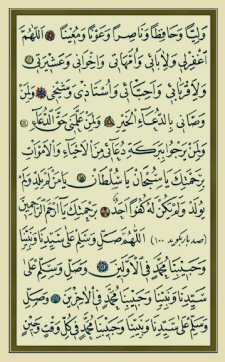 وَلِيًّا وَحَافِظًا وَنَاصِرًا وَعَوْنًا وَمُعِينًا اَللّٰهُمَّ
اغْفِرْلِى وَلِاٰبَائِى وَاُمَّهَاتِى وَاِخْوَانِى وَعَشِيرَتِى
وَلِاَقْرِبَائِى وَاَحِبَّائِى وَاُسْتَاذِى وَشَيْخِى وَلِمَنْ
وَصَّانِى بِالدُّعَاءِ الْخَيْرِ وَلِمَنْ عَلَىَّ حَقُّ الدُّعَاءِ
وَلِمَنْ يَرْجُوا بِبَرَكَةِ دُعَائِى مِنَ الْاَحْيَاءِ وَالْاَمْوَاتِ
بِرَحْمَتِكَ يَا سُبْحَانُ يَا سُلْطَانُ يَامَنْ لَمْ يَلِدْ وَلَمْ
يُولَدْ وَلَمْ يَكُنْ لَهُ كُفُوًا اَحَدٌ بِرَحْمَتِكَ يَآ اَرْحَمَ الرَّاحِمِينَ
(صد بار كويد ١٠٠) اَللّٰهُمَّ صَلِّ وَسَلِّمْ عَلٰى سَيِّدِنَا وَنَبِيِّنَا
وَحَبِيبِنَا مُحَمَّدٍ فِى الْاَوَّلِينَ وَصَلِّ وَسَلِّمْ عَلٰى
سَيِّدِنَا وَنَبِيِّنَا وَحَبِيبِنَا مُحَمَّدٍ فِى الْاٰخِرِينَ وَصَلِّ
وَسَلِّمْ عَلٰى سَيِّدِنَا وَنَبِيِّنَا وَحَبِيبِنَا مُحَمَّدٍ فِى كُلِّ وَقْتٍ وَحِينٍ